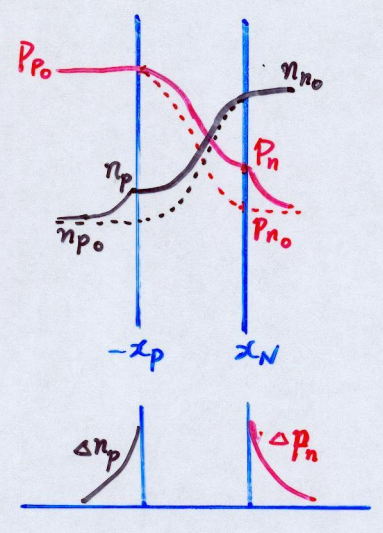 Pp₀
nn₀
np
Pn
np₀
Pn₀
-xp
xN
Δnp
Δpn